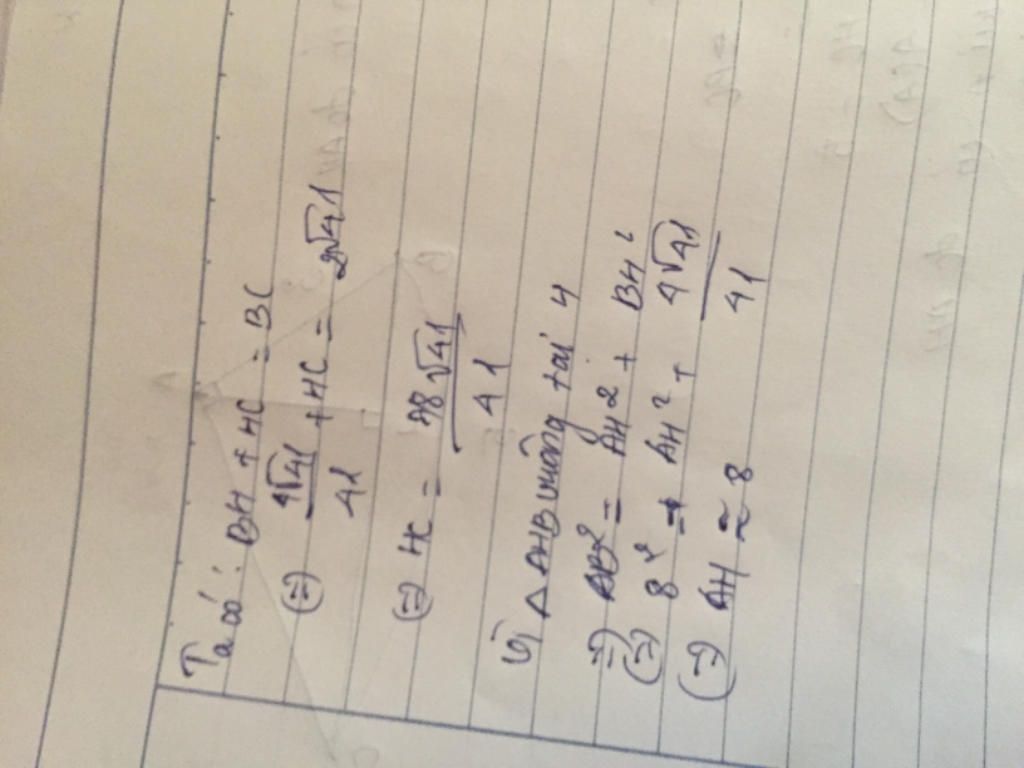 Ta có: BH + HC = BC
(=) 4√41/41 + HC = 2√41
(=) HC = 78√41/41
b) Δ AHB vuông tại H
=) AB² = AH² + BH²
(=) 8² = AH² + 4√41/41
(=) AH ≈ 8